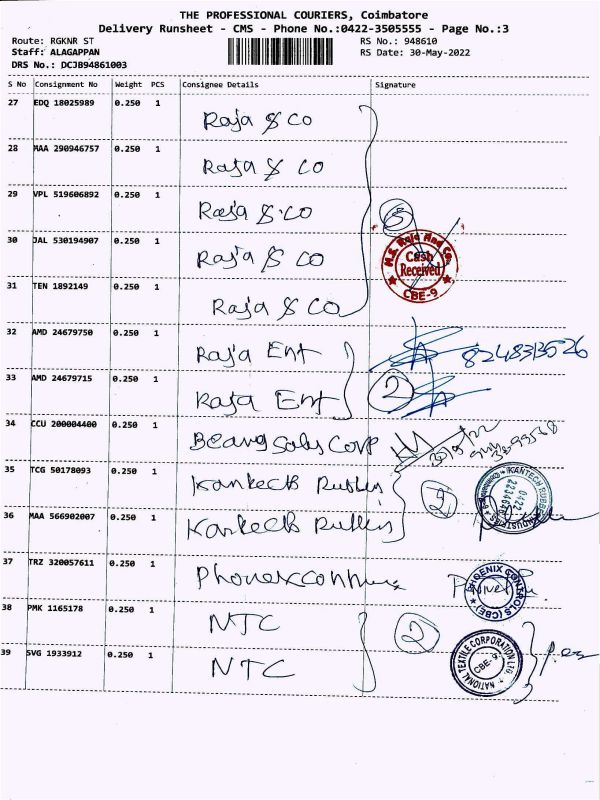 THE PROFESSIONAL COURIERS, Coimbatore
Delivery Runsheet - CMS - Phone No.:0422-3505555 - Page No.:3
Route: RGKNR ST
RS No.: 948610
Staff: ALAGAPPAN
RS Date: 30-May-2022
DRS No.: DCJB94861003
S No Consignment No Weight PCS Consignee Details Signature
27 EDQ 18025989 0.250 1 Raja & Co
28 MAA 290946757 0.250 1 Raja & Co
29 VPL 519606892 0.250 1 Raja & Co
5
30 JAL 530194907 0.250 1 Raja & Co
M.S. Raja And Co.
Cash
Received
CBE-9
31 TEN 1892149 0.250 1 Raja & Co
32 AMD 24679750 0.250 1 Raja Ent
33 AMD 24679715 0.250 1 Raja Ent 2
34 CCU 200004400 0.250 1 Corp
35 TCG 50178093 0.250 1
2
36 MAA 566902007 0.250 1
KANTECH RUBBER INDUSTRIES
0422
37 TRZ 320057611 0.250 1
PHOENIX CONTROLS (CBE)
38 PMK 1165178 0.250 1 NTC 2
39 SVG 1933912 0.250 1 NTC
NATIONAL TEXTILE CORPORATION LTD.
CBE-9